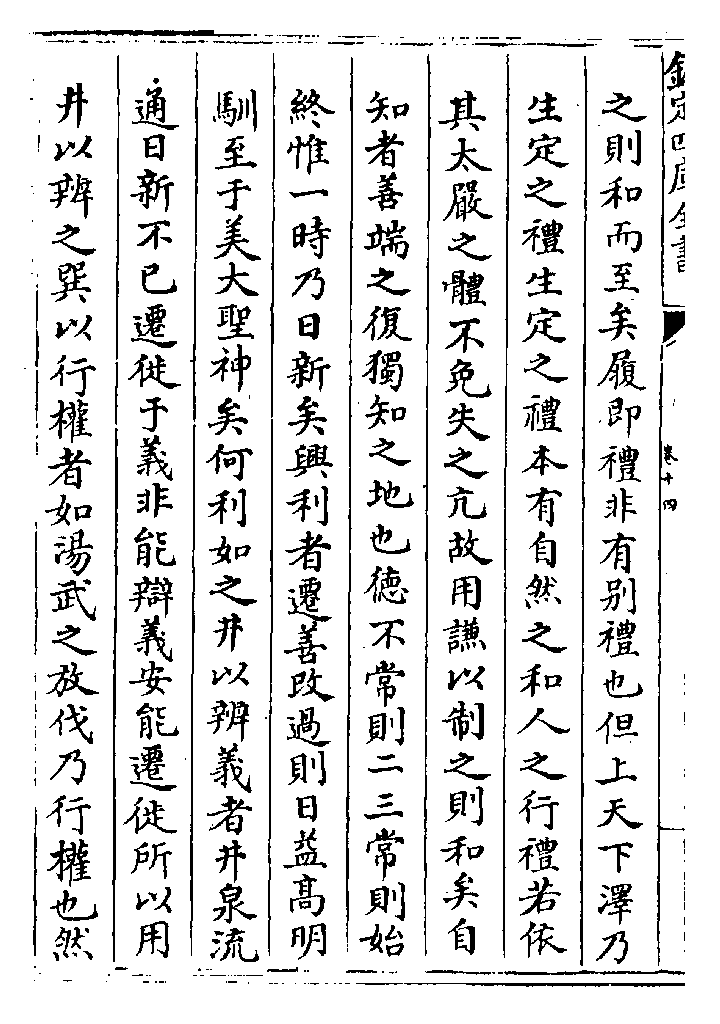 欽定四庫全書
卷十四
之則和而至矣履即禮非有别禮也但上天下澤乃
生定之禮生定之禮本有自然之和人之行禮若依
其太嚴之體不免失之亢故用謙以制之則和矣自
知者善端之復獨知之地也徳不常則二三常則始
終惟一時乃日新矣興利者遷善改過則日益髙明
馴至于美大聖神矣何利如之井以辨義者井泉流
通日新不已遷徙于義非能辯義安能遷徙所以用
井以辨之巽以行權者如湯武之放伐乃行權也然